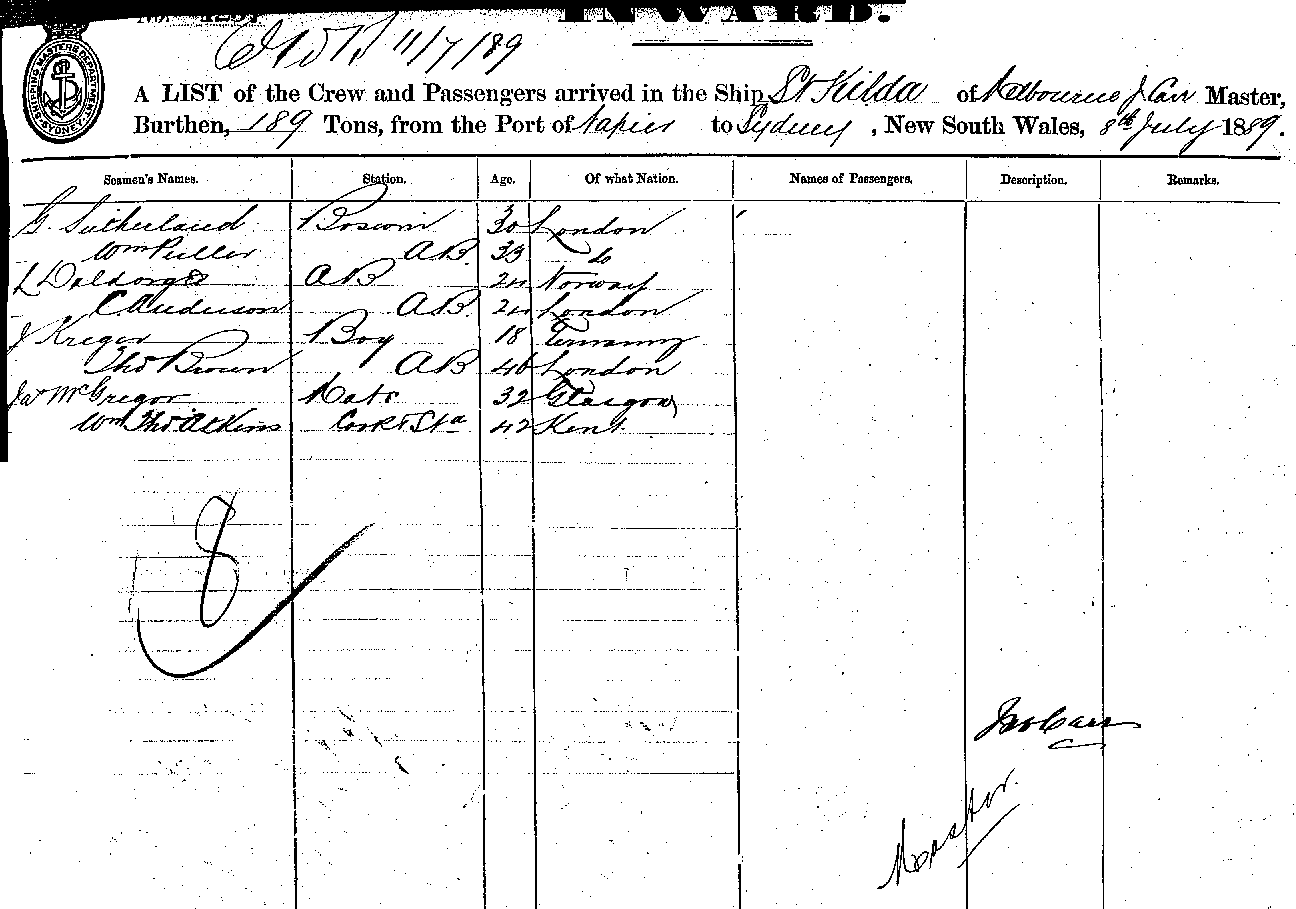 INWARD.
11/7/89
SHIPPING MASTERS DEPARTMENT SYDNEY
A LIST of the Crew and Passengers arrived in the Ship St Kilda of Melbourne J Carr Master,
Burthen, 189 Tons, from the Port of Napier to Sydney, New South Wales, 8th July 1889.
Seamen's Names. Station. Age. Of what Nation. Names of Passengers. Description. Remarks.
G. Sutherland Boswin 30 London
Wm Puller AB. 33 do
L AB 24 Norway
C Anderson AB. 24 London
J Kregor Boy 18 Germany
Thos Brown AB 46 London
Jas McGregor Mate 32 Glasgow
Wm Thos Atkins Cook & Std 42 Kent
8
Jno Carr
Master.